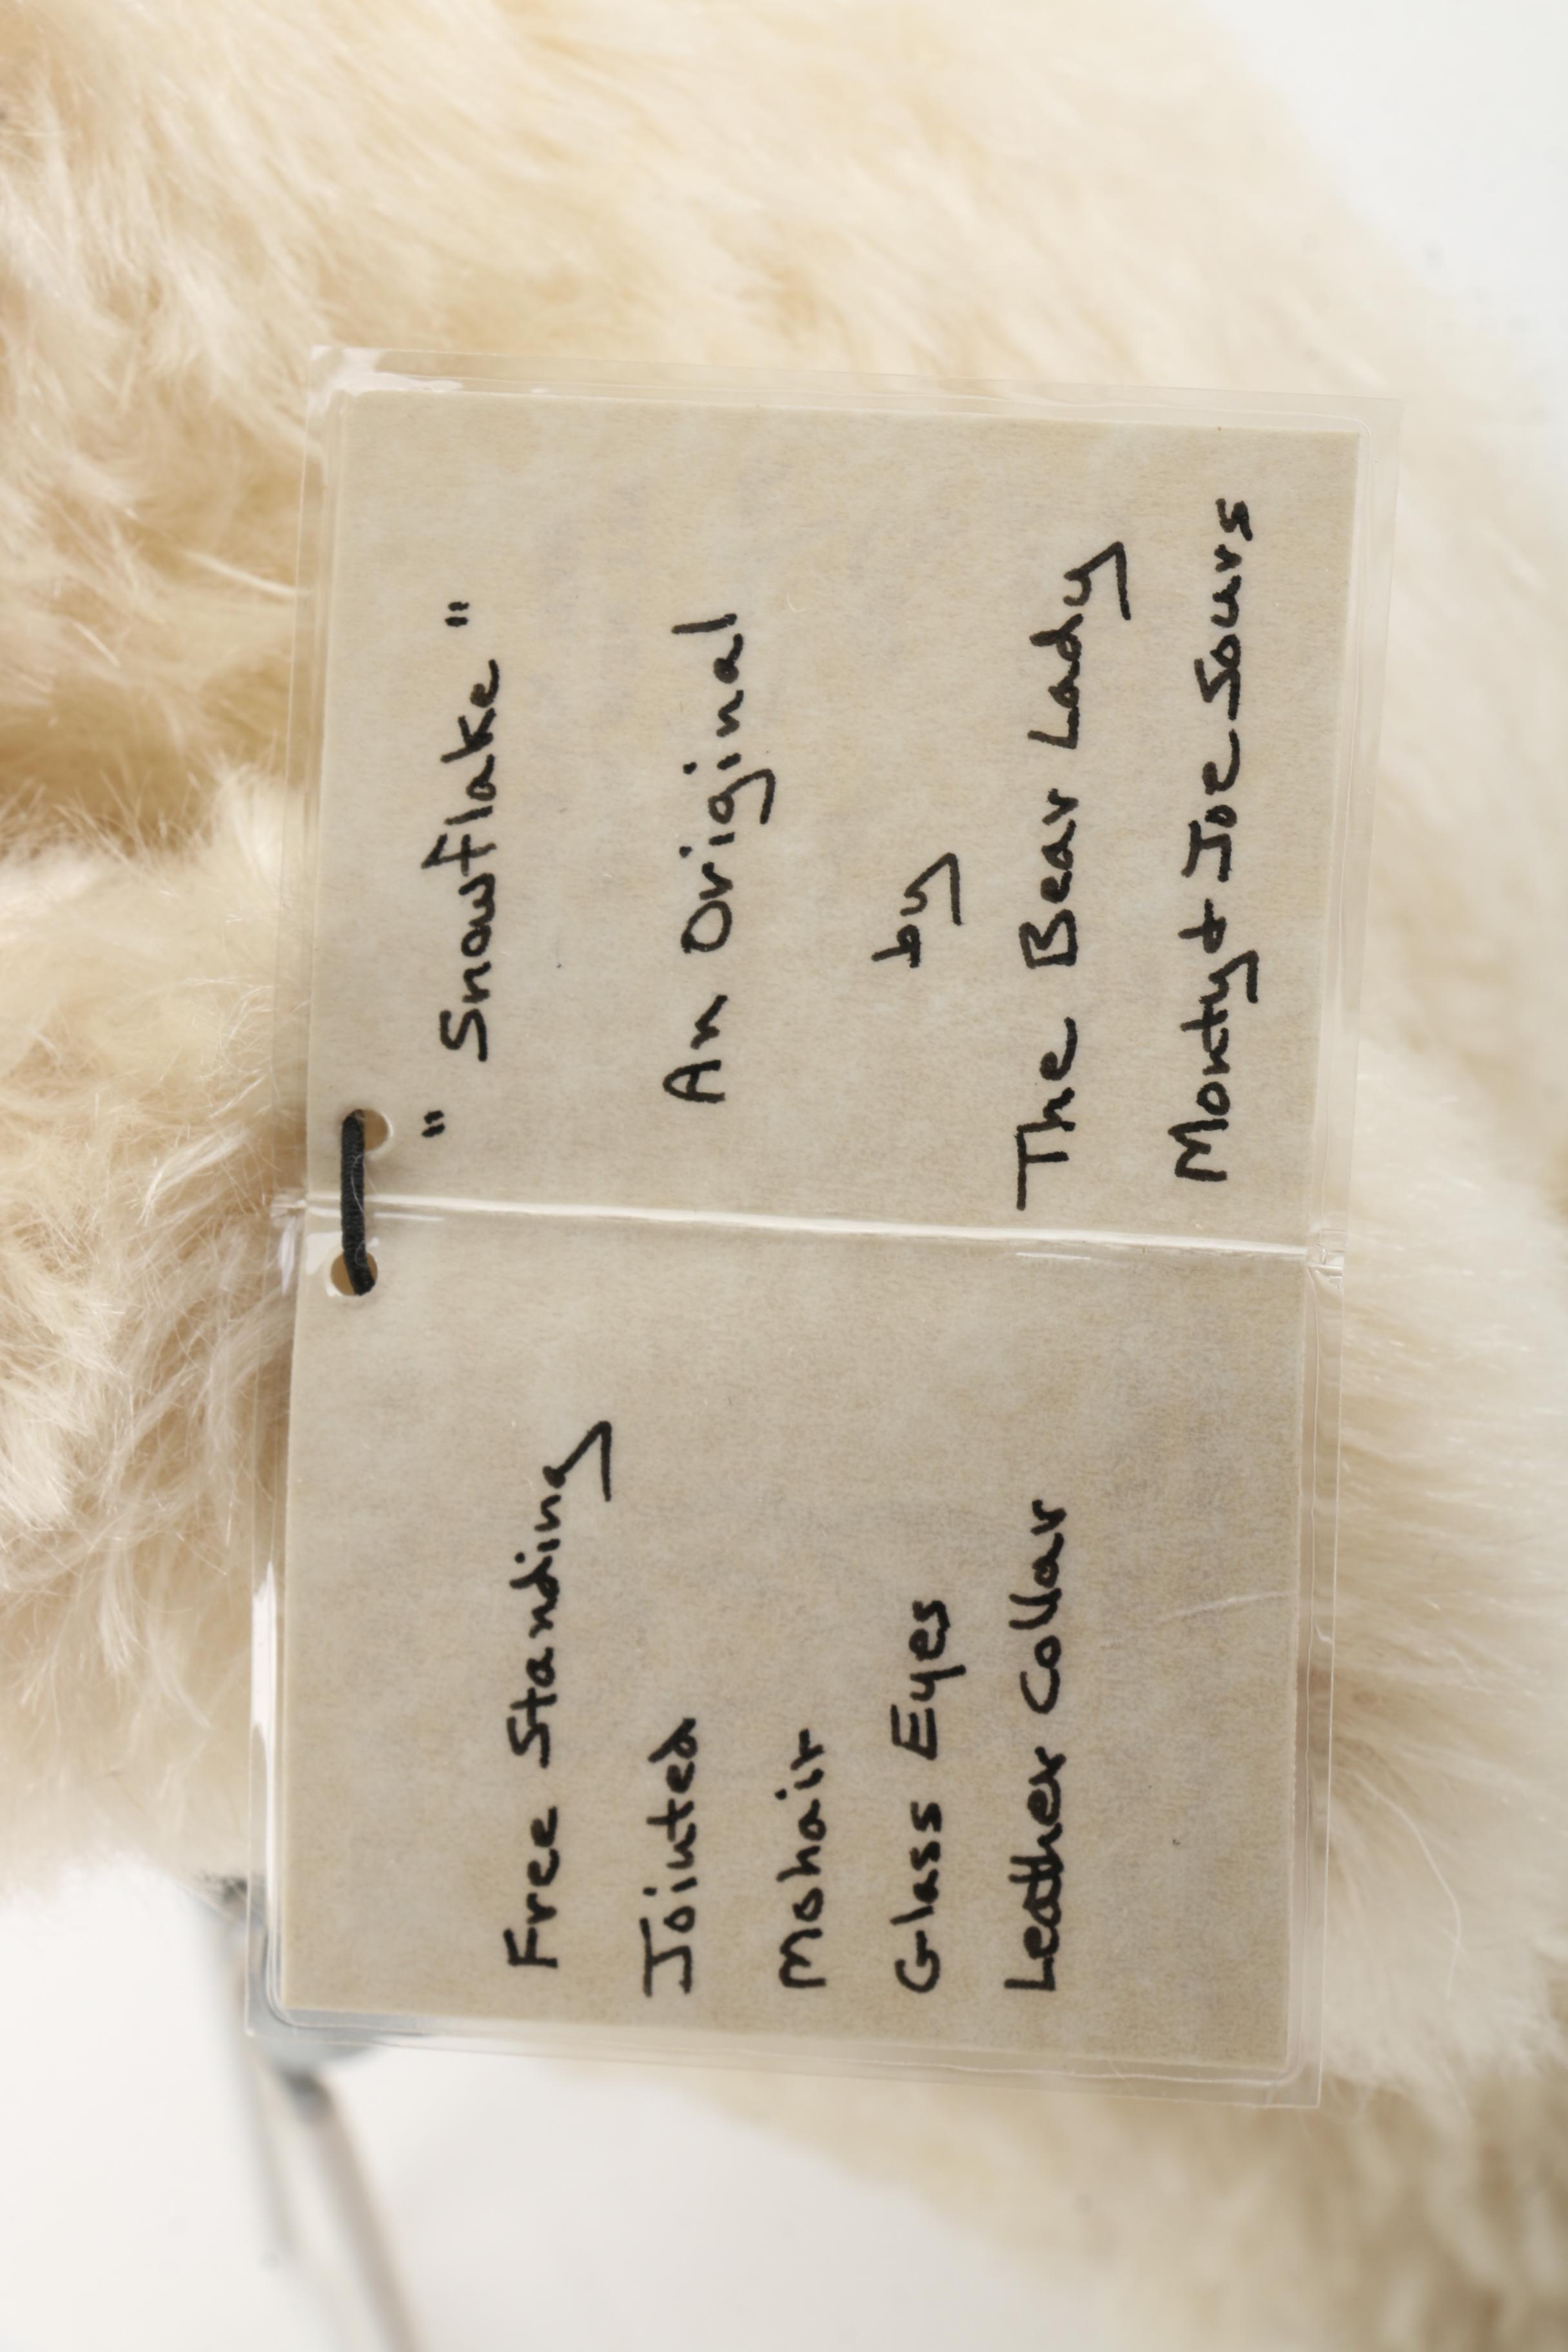 Free Standing
Jointed
Mohair
Glass Eyes
Leather Collar
"Snowflake"
An Original
by
The Bear Lady
Monty & Joe Sours